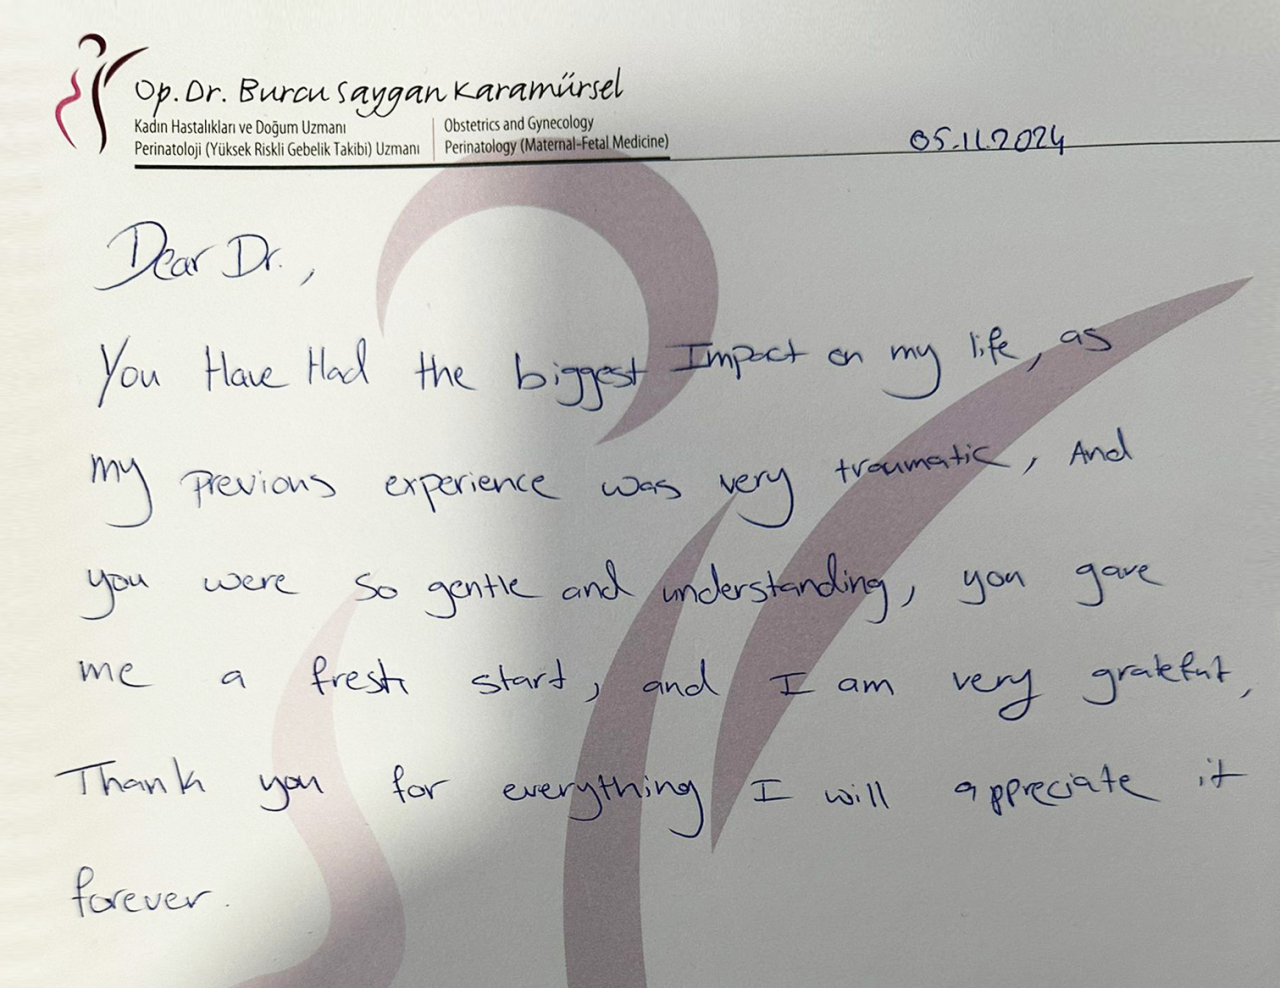 Op. Dr. Burcu Saygan Karamürsel
Kadın Hastalıkları ve Doğum Uzmanı
Perinatoloji (Yüksek Riskli Gebelik Takibi) Uzmanı
Obstetrics and Gynecology
Perinatology (Maternal-Fetal Medicine)
05.11.2024
Dear Dr.,
You Have Had the biggest Impact on my life, as
my previous experience was very traumatic, And
you were so gentle and understanding, you gave
me a fresh start, and I am very grateful,
Thank you for everything I will appreciate it
forever.